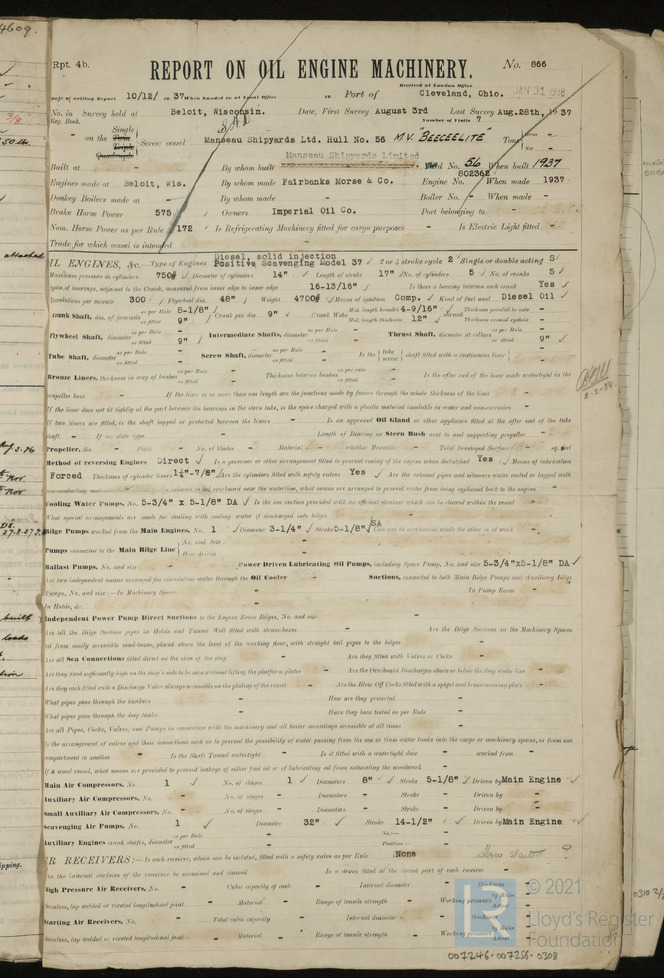 Rpt. 4b.
REPORT ON OIL ENGINE MACHINERY.
No. 866
Received at London Office
JAN 31 1938
Date of writing Report 10/12/ 19 37. When handed in at Local Office Port of Cleveland, Ohio.
No. in Survey held at Beloit, Wisconsin. Date, First Survey August 3rd Last Survey Aug.28th, 1937
Reg. Book. Number of Visits 7
on the Single Twin Triple Quadruple Screw vessel Manseau Shipyards Ltd. Hull No. 56 M.V. "BEECEELITE" Tons
Manseau Shipyards Limited
Built at - By whom built Yard No. 56 When built 1937
802362
Engines made at Beloit, Wis. By whom made Fairbanks Morse & Co. Engine No. When made 1937
Donkey Boilers made at - By whom made - Boiler No. - When made -
Brake Horse Power 575 Owners Imperial Oil Co. Port belonging to
Nom. Horse Power as per Rule 172 Is Refrigerating Machinery fitted for cargo purposes - Is Electric Light fitted -
Trade for which vessel is intended
Diesel, solid injection
OIL ENGINES, &c. Type of Engines Positive Scavenging Model 37 2 or 4 stroke cycle 2 Single or double acting S
Maximum pressure in cylinders 750# Diameter of cylinders 14" Length of stroke 17" No. of cylinders 5 No. of cranks 5
Span of bearings, adjacent to the Crank, measured from inner edge to inner edge 16-13/16" Is there a bearing between each crank Yes
Revolutions per minute 300 Flywheel dia. 48" Weight 4700# Means of ignition Comp. Kind of fuel used Diesel Oil
Crank Shaft, dia. of journals as per Rule 8-1/8" as fitted 9" Crank pin dia. 9" Crank Webs Mid. length breadth 4-9/16" Mid. length thickness 12" Thickness parallel to axis - Thickness around eyehole -
Flywheel Shaft, diameter as per Rule - as fitted 9" Intermediate Shafts, diameter as per Rule - as fitted - Thrust Shaft, diameter at collars as per Rule - as fitted 9"
Tube Shaft, diameter as per Rule as fitted Screw Shaft, diameter as per Rule as fitted Is the tube screw shaft fitted with a continuous liner
Bronze Liners, thickness in way of bushes as per Rule as fitted Thickness between bushes as per Rule as fitted Is the after end of the liner made watertight in the
propeller boss If the liner is in more than one length are the junctions made by fusion through the whole thickness of the liner
If the liner does not fit tightly at the part between the bearings in the stern tube, is the space charged with a plastic material insoluble in water and non-corrosive
If two liners are fitted, is the shaft lapped or protected between the liners Is an approved Oil Gland or other appliance fitted at the after end of the tube
shaft - If so, state type Length of Bearing in Stern Bush next to and supporting propeller
Propeller, dia. - Pitch - No. of blades - Material - whether Moveable - Total Developed Surface sq. feet
Method of reversing Engines Direct Is a governor or other arrangement fitted to prevent racing of the engine when declutched Yes Means of lubrication
Forced Thickness of cylinder liners 1¼"-7/8" Are the cylinders fitted with safety valves Yes Are the exhaust pipes and silencers water cooled or lagged with
Cooling Water Pumps, No. 5-3/4" x 5-1/8" DA Is the sea suction provided with an efficient strainer which can be cleared within the vessel
What special arrangements are made for dealing with cooling water if discharged into bilges
Bilge Pumps worked from the Main Engines, No. 1 Diameter 3-1/4" Stroke 5-1/8" SA Can one be overhauled while the other is at work
Pumps connected to the Main Bilge Line No. and Size How driven
Ballast Pumps, No. and size - Power Driven Lubricating Oil Pumps, including Spare Pump, No. and size 5-3/4"x5-1/8" DA
Are two independent means arranged for circulating water through the Oil Cooler Suctions, connected to both Main Bilge Pumps and Auxiliary Bilge
Pumps, No. and size:—In Machinery Spaces In Pump Room
In Holds, &c.
Independent Power Pump Direct Suctions to the Engine Room Bilges, No. and size
Are all the Bilge Suction pipes in Holds and Tunnel Well fitted with strum-boxes - Are the Bilge Suctions in the Machinery Spaces
led from easily accessible mud-boxes, placed above the level of the working floor, with straight tail pipes to the bilges
Are all Sea Connections fitted direct on the skin of the ship Are they fitted with Valves or Cocks -
Are they fixed sufficiently high on the ship's side to be seen without lifting the platform plates - Are the Overboard Discharges above or below the deep water line -
Are they each fitted with a Discharge Valve always accessible on the plating of the vessel Are the Blow Off Cocks fitted with a spigot and brass covering plate
What pipes pass through the bunkers - How are they protected -
What pipes pass through the deep tanks - Have they been tested as per Rule -
Are all Pipes, Cocks, Valves, and Pumps in connection with the machinery and all boiler mountings accessible at all times
Is the arrangement of valves and their connections such as to prevent the possibility of water passing from the sea or from water tanks into the cargo or machinery spaces, or from one
compartment to another - Is the Shaft Tunnel watertight - Is it fitted with a watertight door worked from
If a wood vessel, what means are provided to prevent leakage of either fuel oil or of lubricating oil from saturating the woodwork
Main Air Compressors, No. 1 No. of stages 1 Diameters 8" Stroke 5-1/8" Driven by Main Engine
Auxiliary Air Compressors, No. - No. of stages - Diameters - Stroke - Driven by -
Small Auxiliary Air Compressors, No. - No. of stages - Diameters - Stroke - Driven by -
Scavenging Air Pumps, No. 1 Diameter 32" Stroke 14-1/2" Driven by Main Engine
Auxiliary Engines crank shafts, diameter as per Rule as fitted - No.:- Position:-
AIR RECEIVERS:—Is each receiver, which can be isolated, fitted with a safety valve as per Rule None
Can the internal surfaces of the receivers be examined and cleaned Is a drain fitted at the lowest part of each receiver
High Pressure Air Receivers, No. - Cubic capacity of each - Internal diameter - thickness
Seamless, lap welded or riveted longitudinal joint - Material - Range of tensile strength - Working pressure by Rules Actual
Starting Air Receivers, No. - Total cubic capacity - Internal diameter - thickness
Seamless, lap welded or riveted longitudinal joint - Material - Range of tensile strength - Working pressure by Rules Actual
© 2021
Lloyd's Register
Foundation
007246-007256-0308